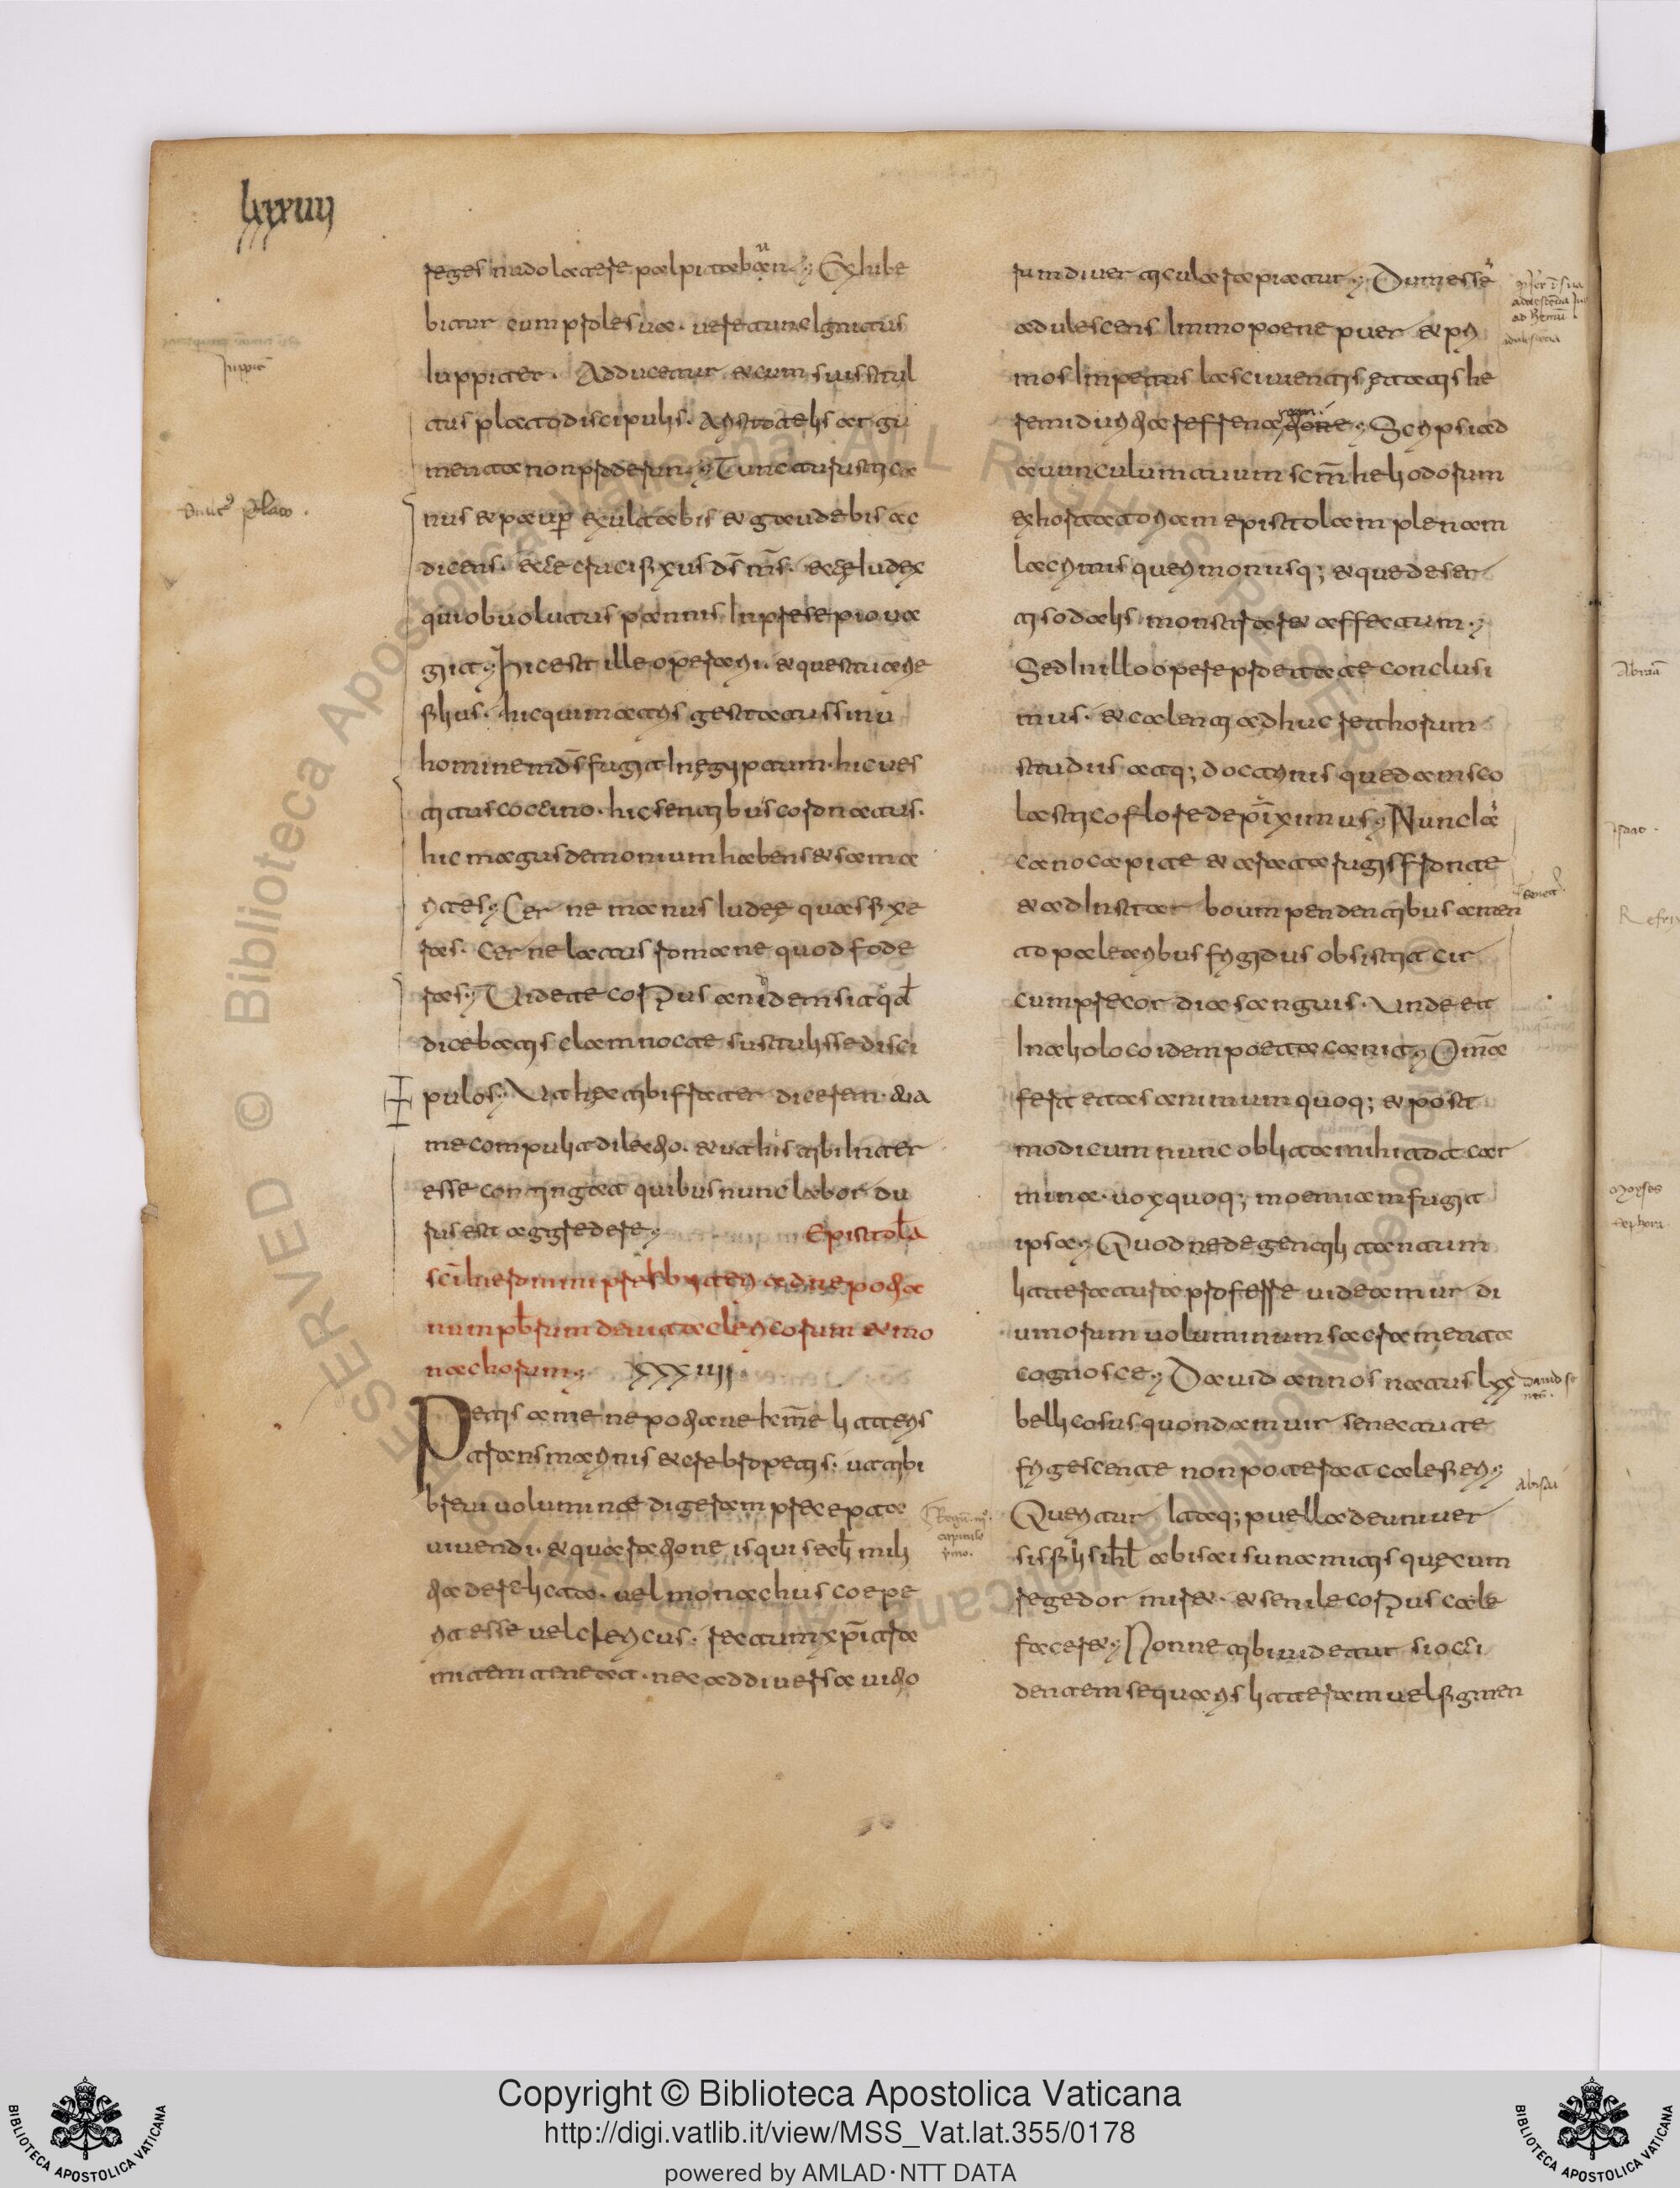 lxxxiiii
reges nudo latere palpitabun̄t; Exhibe
bitur cum prole sua. uere tunc Ignitus
Iuppiter. Adducetur et cum suis stul
tus plato discipulis. Aristotelis argu
menta non proderun; Tunc tu rusticæ
nus et paup̄ exultabis et gaudebis ac
dicens. ecce crucifixus ds̄ ms̄. ecce Iudex
qui obuolutus pannis In presepio ua
git; Hic est ille operarii. et questuarie
filius. hic qui matris gestatus sinu
hominem ds̄ fugit In egyptum. hic ues
titus coccino. hic sentibus coronatus.
hic magus demonium habens et sama
rites; Cerne manus Iudee quas fixe
ras. Cerne latus romane quod fode
ras; Videte corpus an idem sit qd̄
dicebatis clam nocte sustulisse disci
pulos; Vt hec tibi frater dicerem. dia
me compulit dilectio. et ut his tibi Inter
esse contingat quibus nunc labor du
rus est aggredere;
Epistol̄a
sc̄i hieronimi prēsbyteri ad nepotia
num pbr̄um de uita clericorum et mo
nachorum; XXXIIII
Petis a me nepotiane kar̄me litteris
transmarinis et crebro petis. ut tibi
breui uolumine digeram precepta
uiuendi. et qua ratione is qui secl̄i mili
tia derelicta. uel monachus coepe
rit esse uel clericus. rectum xp̄i tra
mitem teneat. nec ad diuersa uitio
rum diuerticula rapiatur; Dum essē
adulescens Immo poene puer et pri
mos Inpetus lasciuientis etatis he
remi duritia reffena; Scripsi ad
auunculum tuum sc̄m heliodorum
exhortatoriam epistolam plenam
lacrimis querimoniisq; et que deser
ti sodalis monstraret affectum;
Sed In illo opere pro etate conclusi
mus. et calenti adhuc rethorum
studiis atq; doctrinis quedam sco
lastico flore depinximus; Nunc Ia
cano capite et arata rugis fronte
et ad Instar boum pendentibus a men
to palearibus frigidus obsistit cir
cum precordia sanguis. Vnde et
In alio loco idem poeta canit; Om̄a
fert etas animum quoq; et post
modicum nunc oblita mihi tot car
mina. uox quoq; moerim iam fugit
ipsa; Quod ne de gentili tantum
litteratura proferre uideamur di
uinorum uoluminum sacramenta
cognosce; Dauid annos natus lxx
bellicosus quondam uir senectute
frigescente non poterat calefieri;
Queritur Itaq; puella de uniuer
sis finib; isrl̄ abisai sunamitis que cum
rege dormiret. et senile corpus cale
faceret; Nonne tibi uidetur si occi
dentem sequaris litteram uel figmen
Iuppit̄
Plato.
capitulo
Abisai
Abraā
Isaac.
Moyses
Sephora
Copyright © Biblioteca Apostolica Vaticana
http://digi.vatlib.it/view/MSS_Vat.lat.355/0178
powered by AMLAD·NTT DATA
BIBLIOTECA APOSTOLICA VATICANA
BIBLIOTECA APOSTOLICA VATICANA